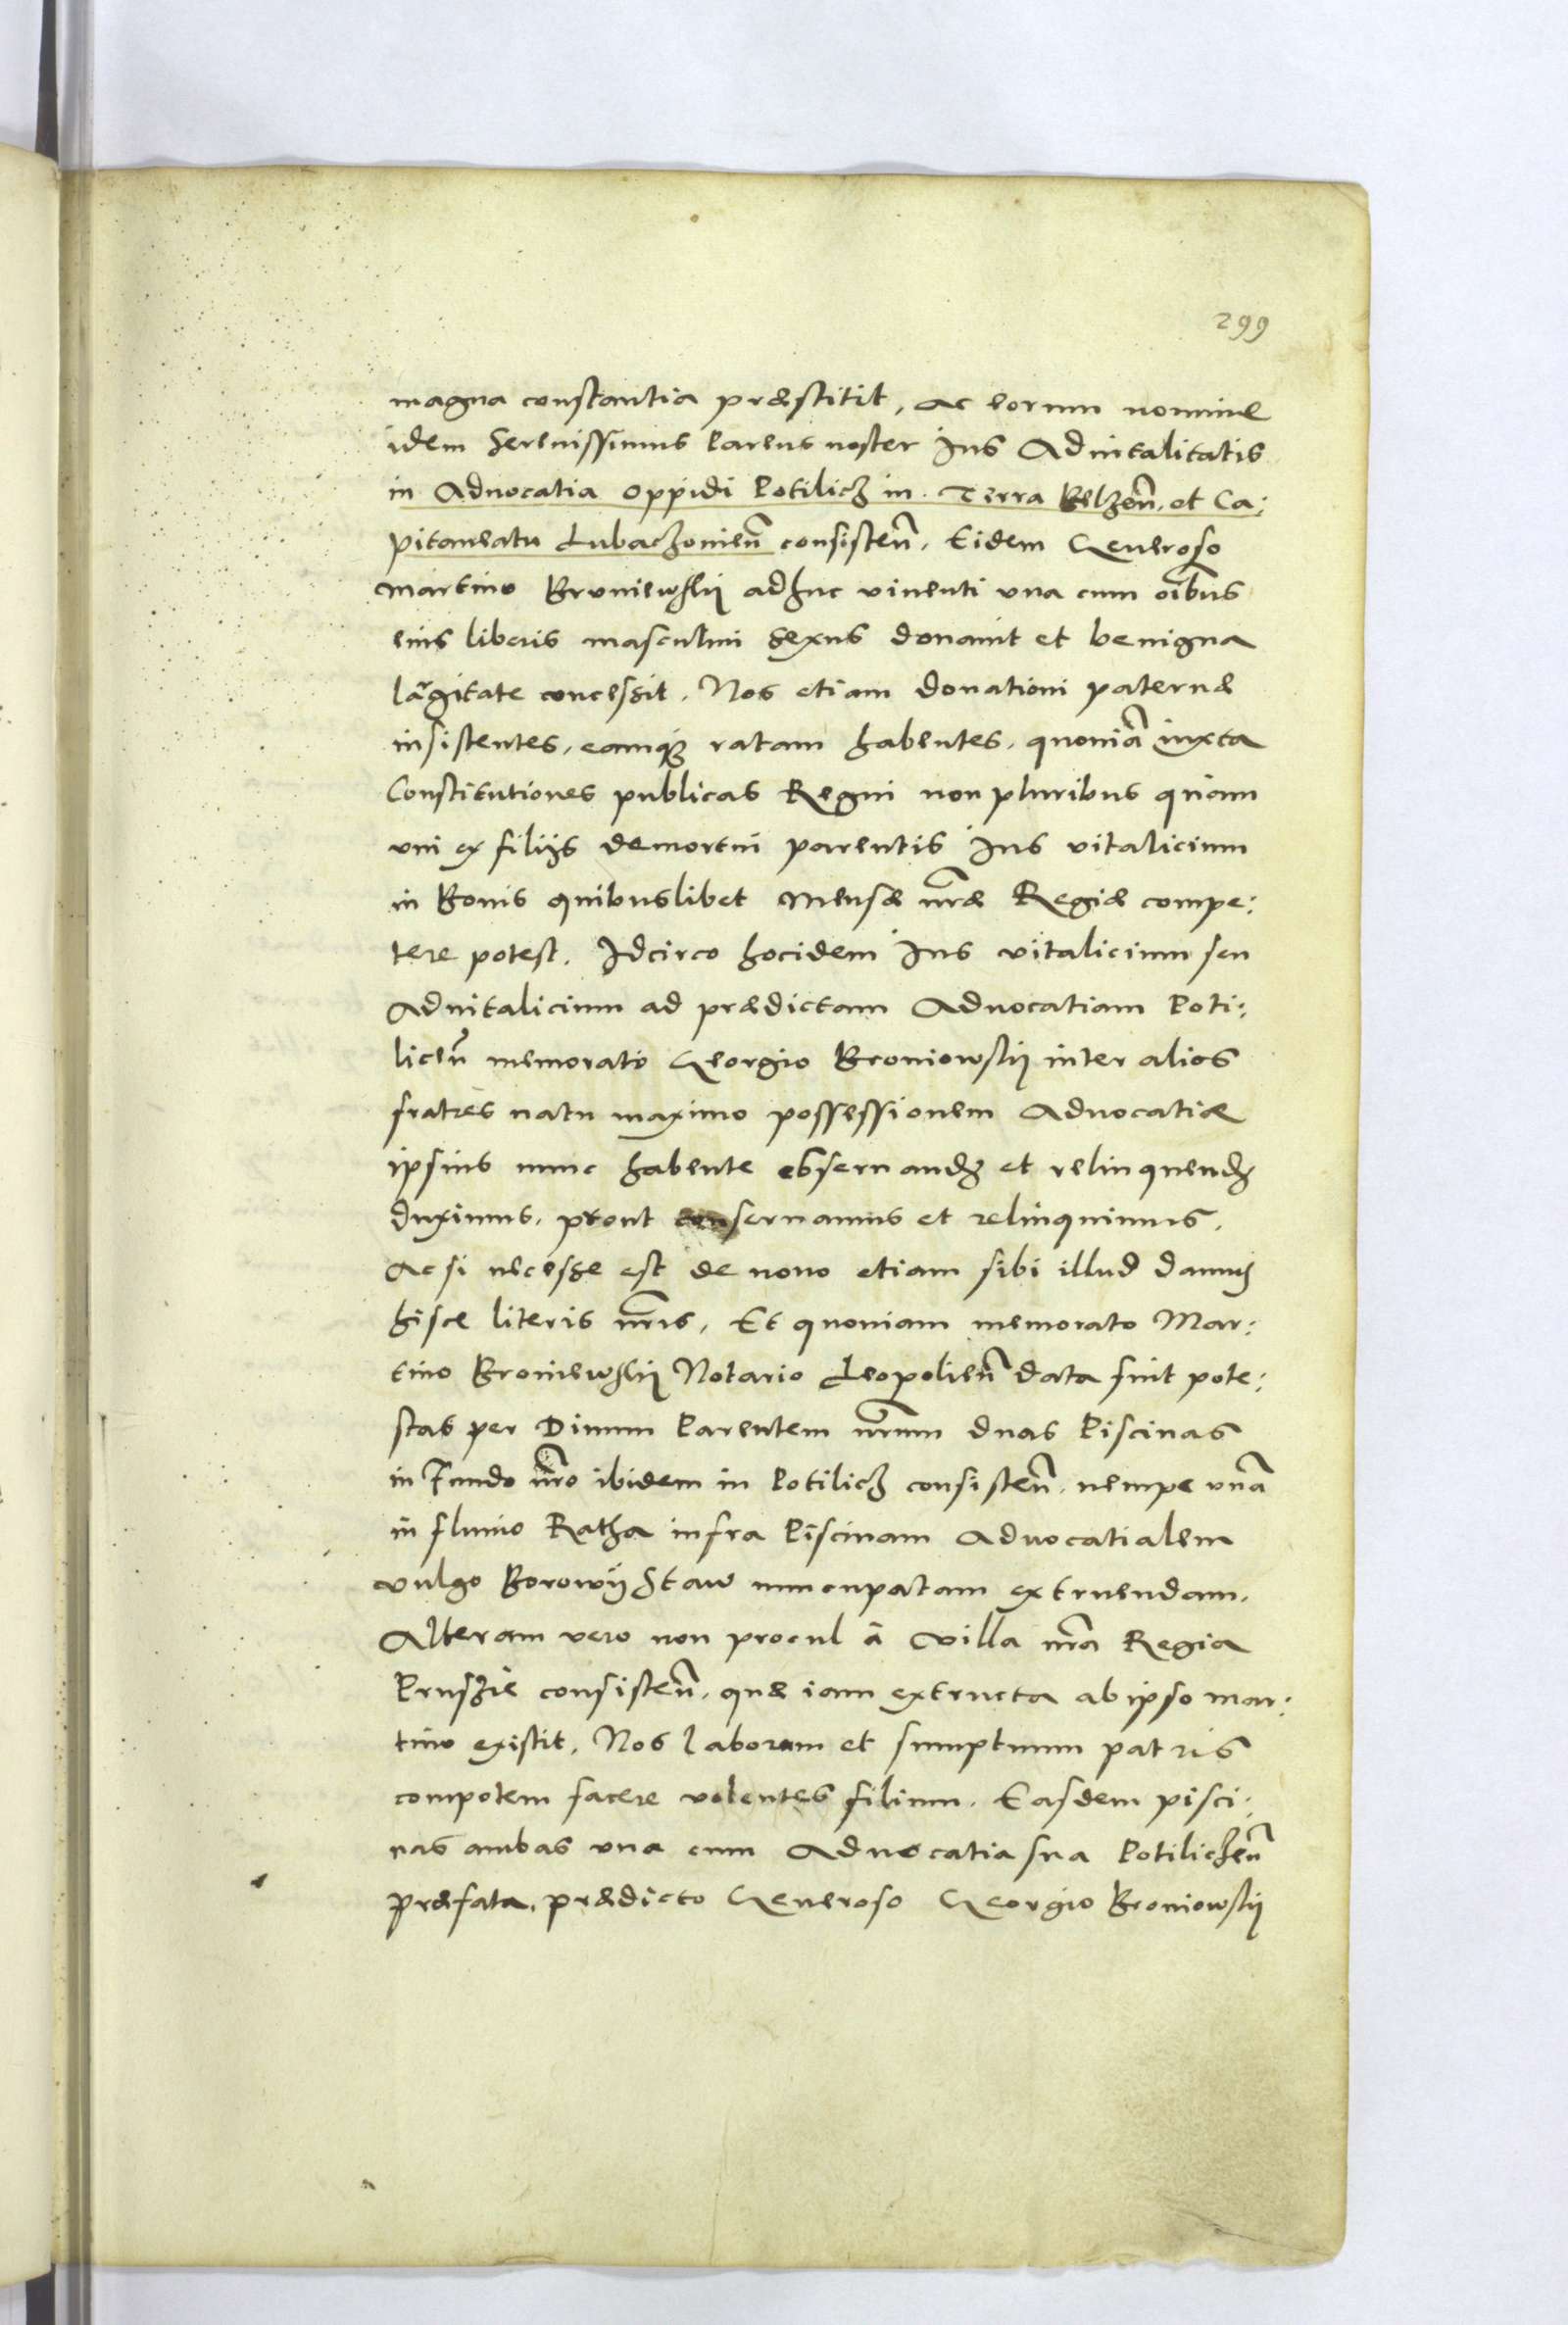 299
magna constantia præstitit, ac eorum nomine
idem Serenissimus Parens noster Ius Aduitalitatis
in Aduocatia oppidi Potilicz in Terra Belzeñ. et Ca:
pitaneatu Lubaczouieñ consisteñ. Eidem Generoso
Martino Broniewskij adhuc viuenti vna cum oĩbus
eius liberis masculini sexus donauit et benigna
lãgitate concessit. Nos etiam donationi paternæ
insistentes, eamqȝ ratam habentes, quoniã iuxta
Constitutiones publicas Regni non pluribus quàm
vni ex filijs demortui parentis Ius vitalicium
in Bonis quibuslibet Mensæ nr̃æ Regiæ compe:
tere potest. Idcirco hocidem Ius vitalicium seu
Aduitalicium ad prædictam Aduocatiam Poti:
liceñ memorato Georgio Broniowskij inter alios
fratres natu maximo possessionem Aduocatiæ
ipsius nunc habente obseruandȝ et relinquendȝ
duximus, prout conseruamus et relinquimus.
Ac si necesse est de nouo etiam sibi illud damus
hisce literis nr̃is. Et quoniam memorato Mar:
tino Broniewskij Notario Leopolieñ data sint pote:
stas per Diuum Parentem nr̃um duas Piscinas
in Fundo nr̃o ibidem in Potilicz consisteñ. nempe vnã
in fluuio Ratha infra Piscinam Aduocatialem
vulgo Borowij Staw nuncupatam extruendam.
Alteram vero non procul à villa nr̃a Regia
Pruszie consisteñ. quæ iam extructa ab ipso Mar:
tino existit. Nos laborum et sumptuum patris
compotem facere volentes filium. Easdem pisci:
nas ambas vna cum Aduocatia sua Potiliczeñ
præfata, prædicto Generoso Georgio Broniowskij